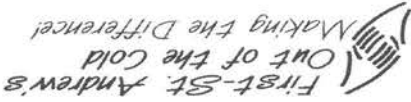 First-St. Andrew's
Out of the Cold
Making the Difference!